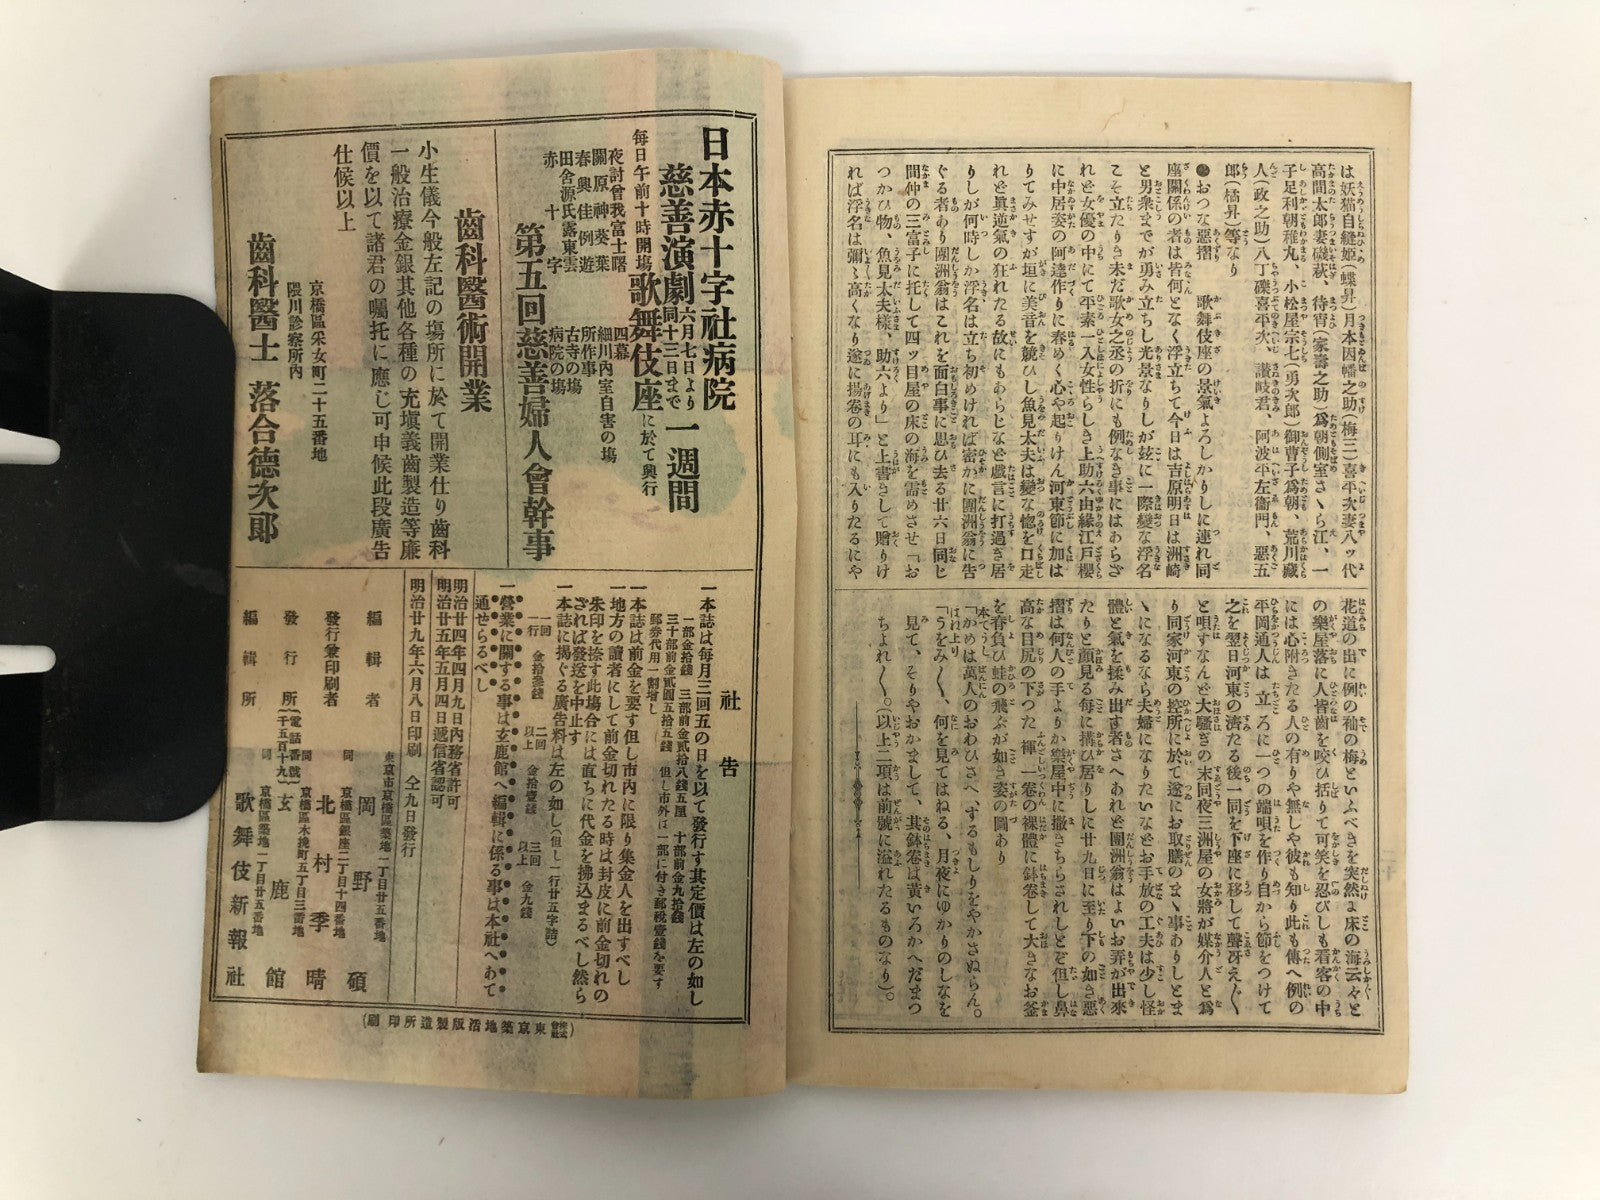 は妖猫自縫姫(蝶昇)月本因幡之助(梅三)喜平次妻八ッ代
高間太郎妻磯萩、待宵(家壽之助)爲朝側室さゝら江、一
子足利朝稚丸、小松屋宗七(勇次郎)御曹子爲朝、荒川藏
人(政之助)八丁礫喜平次、讃岐君、阿波平左衞門、惡五
郎(橘昇)等なり
●おつな惡摺 歌舞伎座の景氣よろしかりしに連れ同
座關係の者は皆何となく浮立ちて今日は吉原明日は洲崎
と男衆までが勇み立ちし光景なりしが茲に一際變な浮名
こそ立たりき未だ歌女之丞の折にも例なき事にはあらざ
れど女優の中にて平素一入女性らしき上助六由縁江戸櫻
に中居姿の阿達作りに春めく心や起りけん河東節に加は
りてみせすが垣に美音を競ひし魚見太夫は變な惚を口走
れど眞逆氣の狂れたる故にもあらじなど戯言に打過ぎ居
りしが何時しか浮名は立ち初めければ密かに團洲翁に告
ぐる者あり團洲翁はこれを面白事に思ひ去る廿六日同じ
間仲の三富子に托して四ッ目屋の床の海を需めさせ「お
つかひ物、魚見太夫樣、助六より」と上書きして贈りけ
れば浮名は彌〻高くなり遂に揚卷の耳にも入りたるにや
花道の出に例の袖の梅といふべきを突然ま床の海云々と
の樂屋落に人皆齒を咬ひ括りて可笑を忍びしも看客の中
には心附きたる人の有りや無しや彼も知り此も傳へ例の
平岡通人は 立ろに一つの端唄を作り自から節をつけて
之を翌日河東の濟たる後一同を下座に移して聲冴え〲
と唄すなんど大騷ぎの末同夜三洲屋の女將が媒介人と爲
り同家河東の控所に於て遂にお取膳のまゝ事ありしとま
ゝになるなら夫婦になりたいなどお手放の工夫は少し怪
體と氣を揉み出す者さへあれど團洲翁はよいお弄が出來
たりと顏見る每に搆ひ居りしに廿九日に至り下の如き惡
摺は何人の手よりか樂屋中に撒きちらされしとぞ但し鼻
高な目尻の下つた 褌 一卷の裸體に鉢卷して大きなお釜
を脊負ひ蛙の飛ぶが如き姿の圖あり
本てうし
「かめは萬人のおわひさへ、するもしりをやかさぬらん。
はれ上り
「うをみ〱、何を見てはねる、月夜にゆかりのしなを
見て、そりやおかまして、其鉢卷は黄いろかへだまつ
ちよれ〱。(以上二項は前號に溢れたるものなり)。
日本赤十字社病院
慈善演劇 六月七日より 同十三日まで 一週間
每日午前十時開塲 歌舞伎座に於て興行
夜討曾我富士曙 四幕
關原神葵葉 細川內室自害の塲
春興佳例遊 所作事
田舍源氏露東雲 古寺の塲
赤十字 病院の塲
第五回慈善婦人會幹事
齒科醫術開業
小生儀今般左記の塲所に於て開業仕り齒科
一般治療金銀其他各種の充塡義齒製造等廉
價を以て諸君の囑托に應じ可申候此段廣告
仕候以上
京橋區采女町二十五番地
隈川診察所內
齒科醫士 落合德次郎
社告
一本誌は每月三回五の日を以て發行す其定價は左の如し
一部金拾錢 三部前金貳拾八錢五厘 十部前金九拾錢
三十部前金貳圓五拾五錢 但し市外は一部に付き郵稅壹錢を要す
郵券代用一割增し
一本誌は前金を要す但し市內に限り集金人を出すべし
一地方の讀者にして前金切れたる時は封皮に前金切れの
朱印を捺す此塲合には直ちに代金を拂込まるべし然ら
ざれば發送を中止す
一本誌に揭ぐる廣告料は左の如し(但し一行廿五字詰)
一回 一行 金拾參錢 二回以上 金拾壹錢 三回以上 金九錢
一營業に關する事は玄鹿館へ編輯に係る事は本社へあて
通せらるべし
明治廿四年四月九日內務省許可
明治廿五年五月四日遞信省認可
明治廿九年六月八日印刷 仝九日發行
東京市京橋區築地二丁目廿五番地
編輯者 岡野碩
同 京橋區銀座二丁目十四番地
發行兼印刷者 北村季晴
同 京橋區木挽町五丁目三番地
發行所(電話番號千五百十九) 玄鹿館
同 京橋區築地二丁目廿五番地
編輯所 歌舞伎新報社
(株式會社東京築地活版製造所印刷)